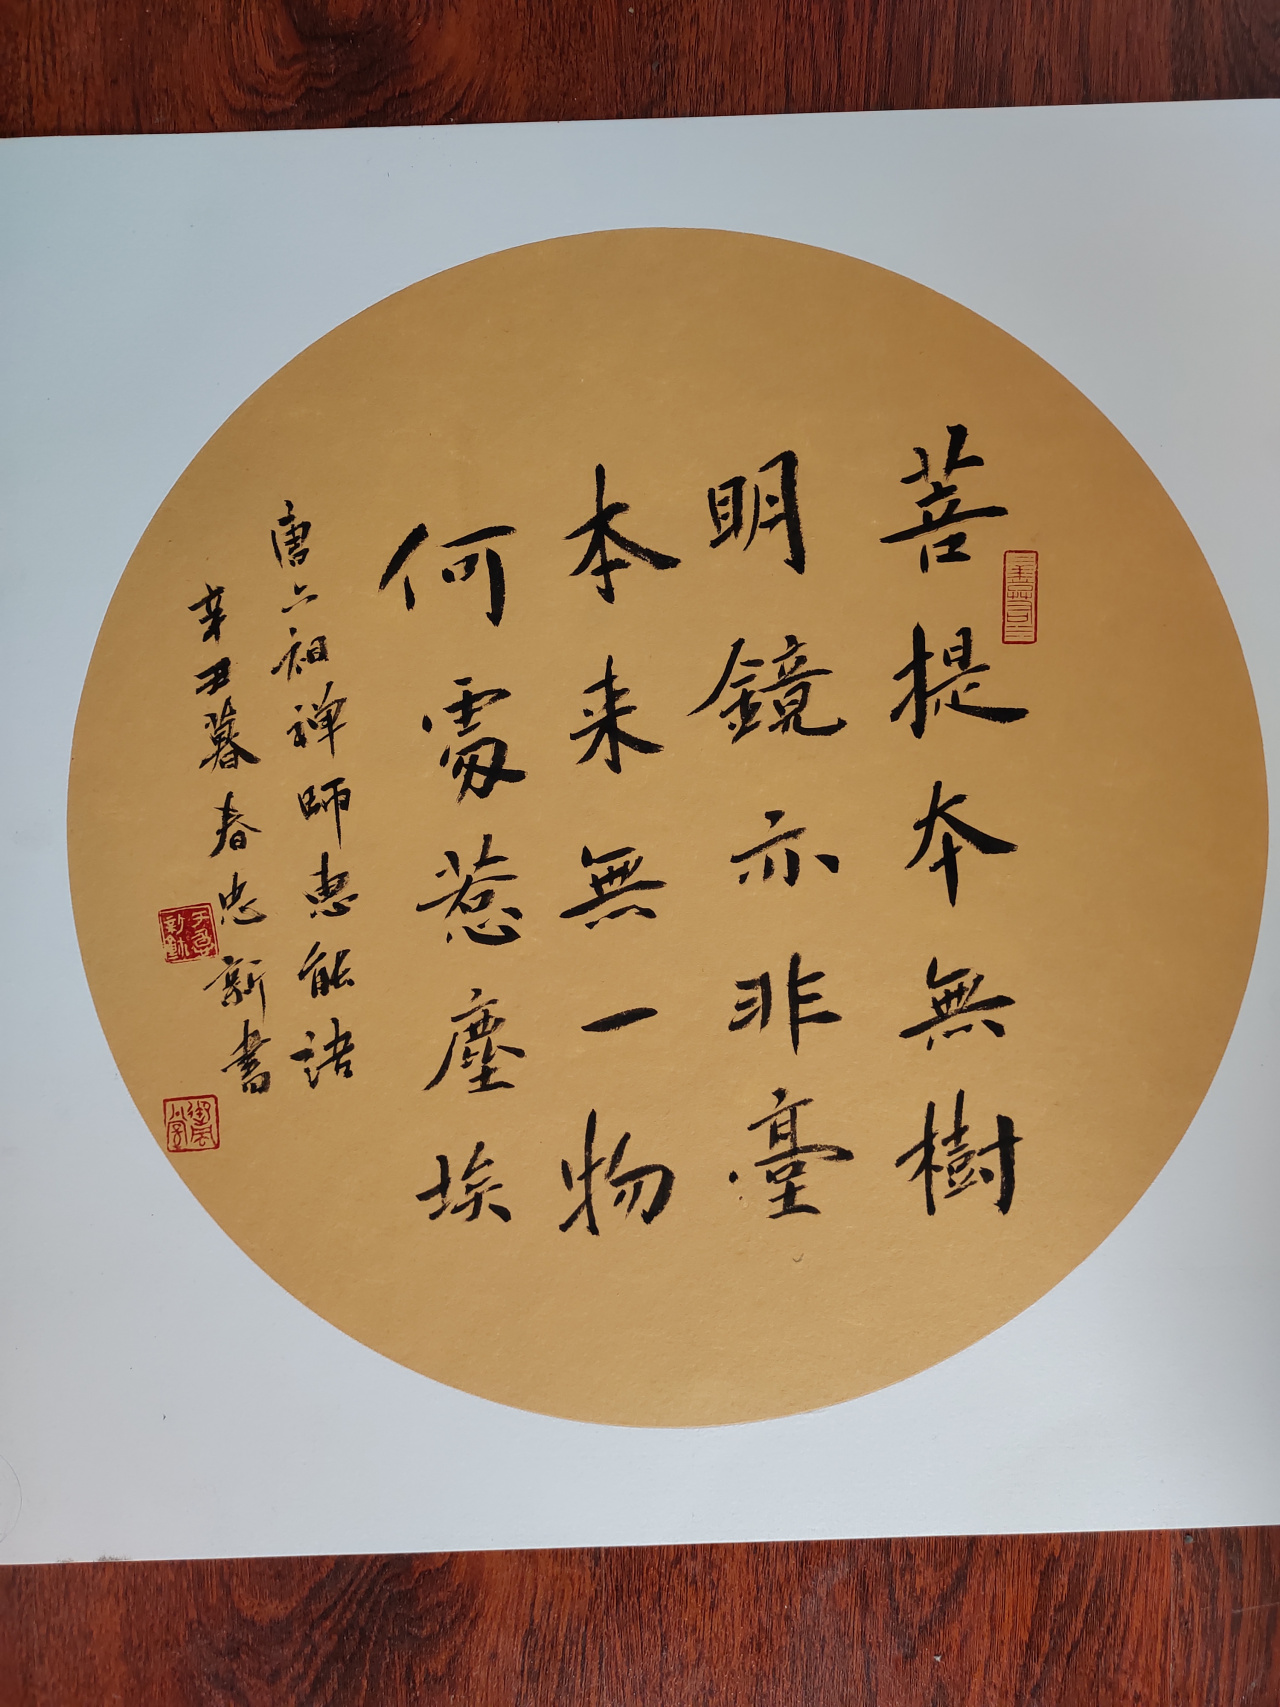 菩提本無樹
明鏡亦非臺
本来無一物
何處惹塵埃
唐六祖禅師惠能语
辛丑暮春忠新書